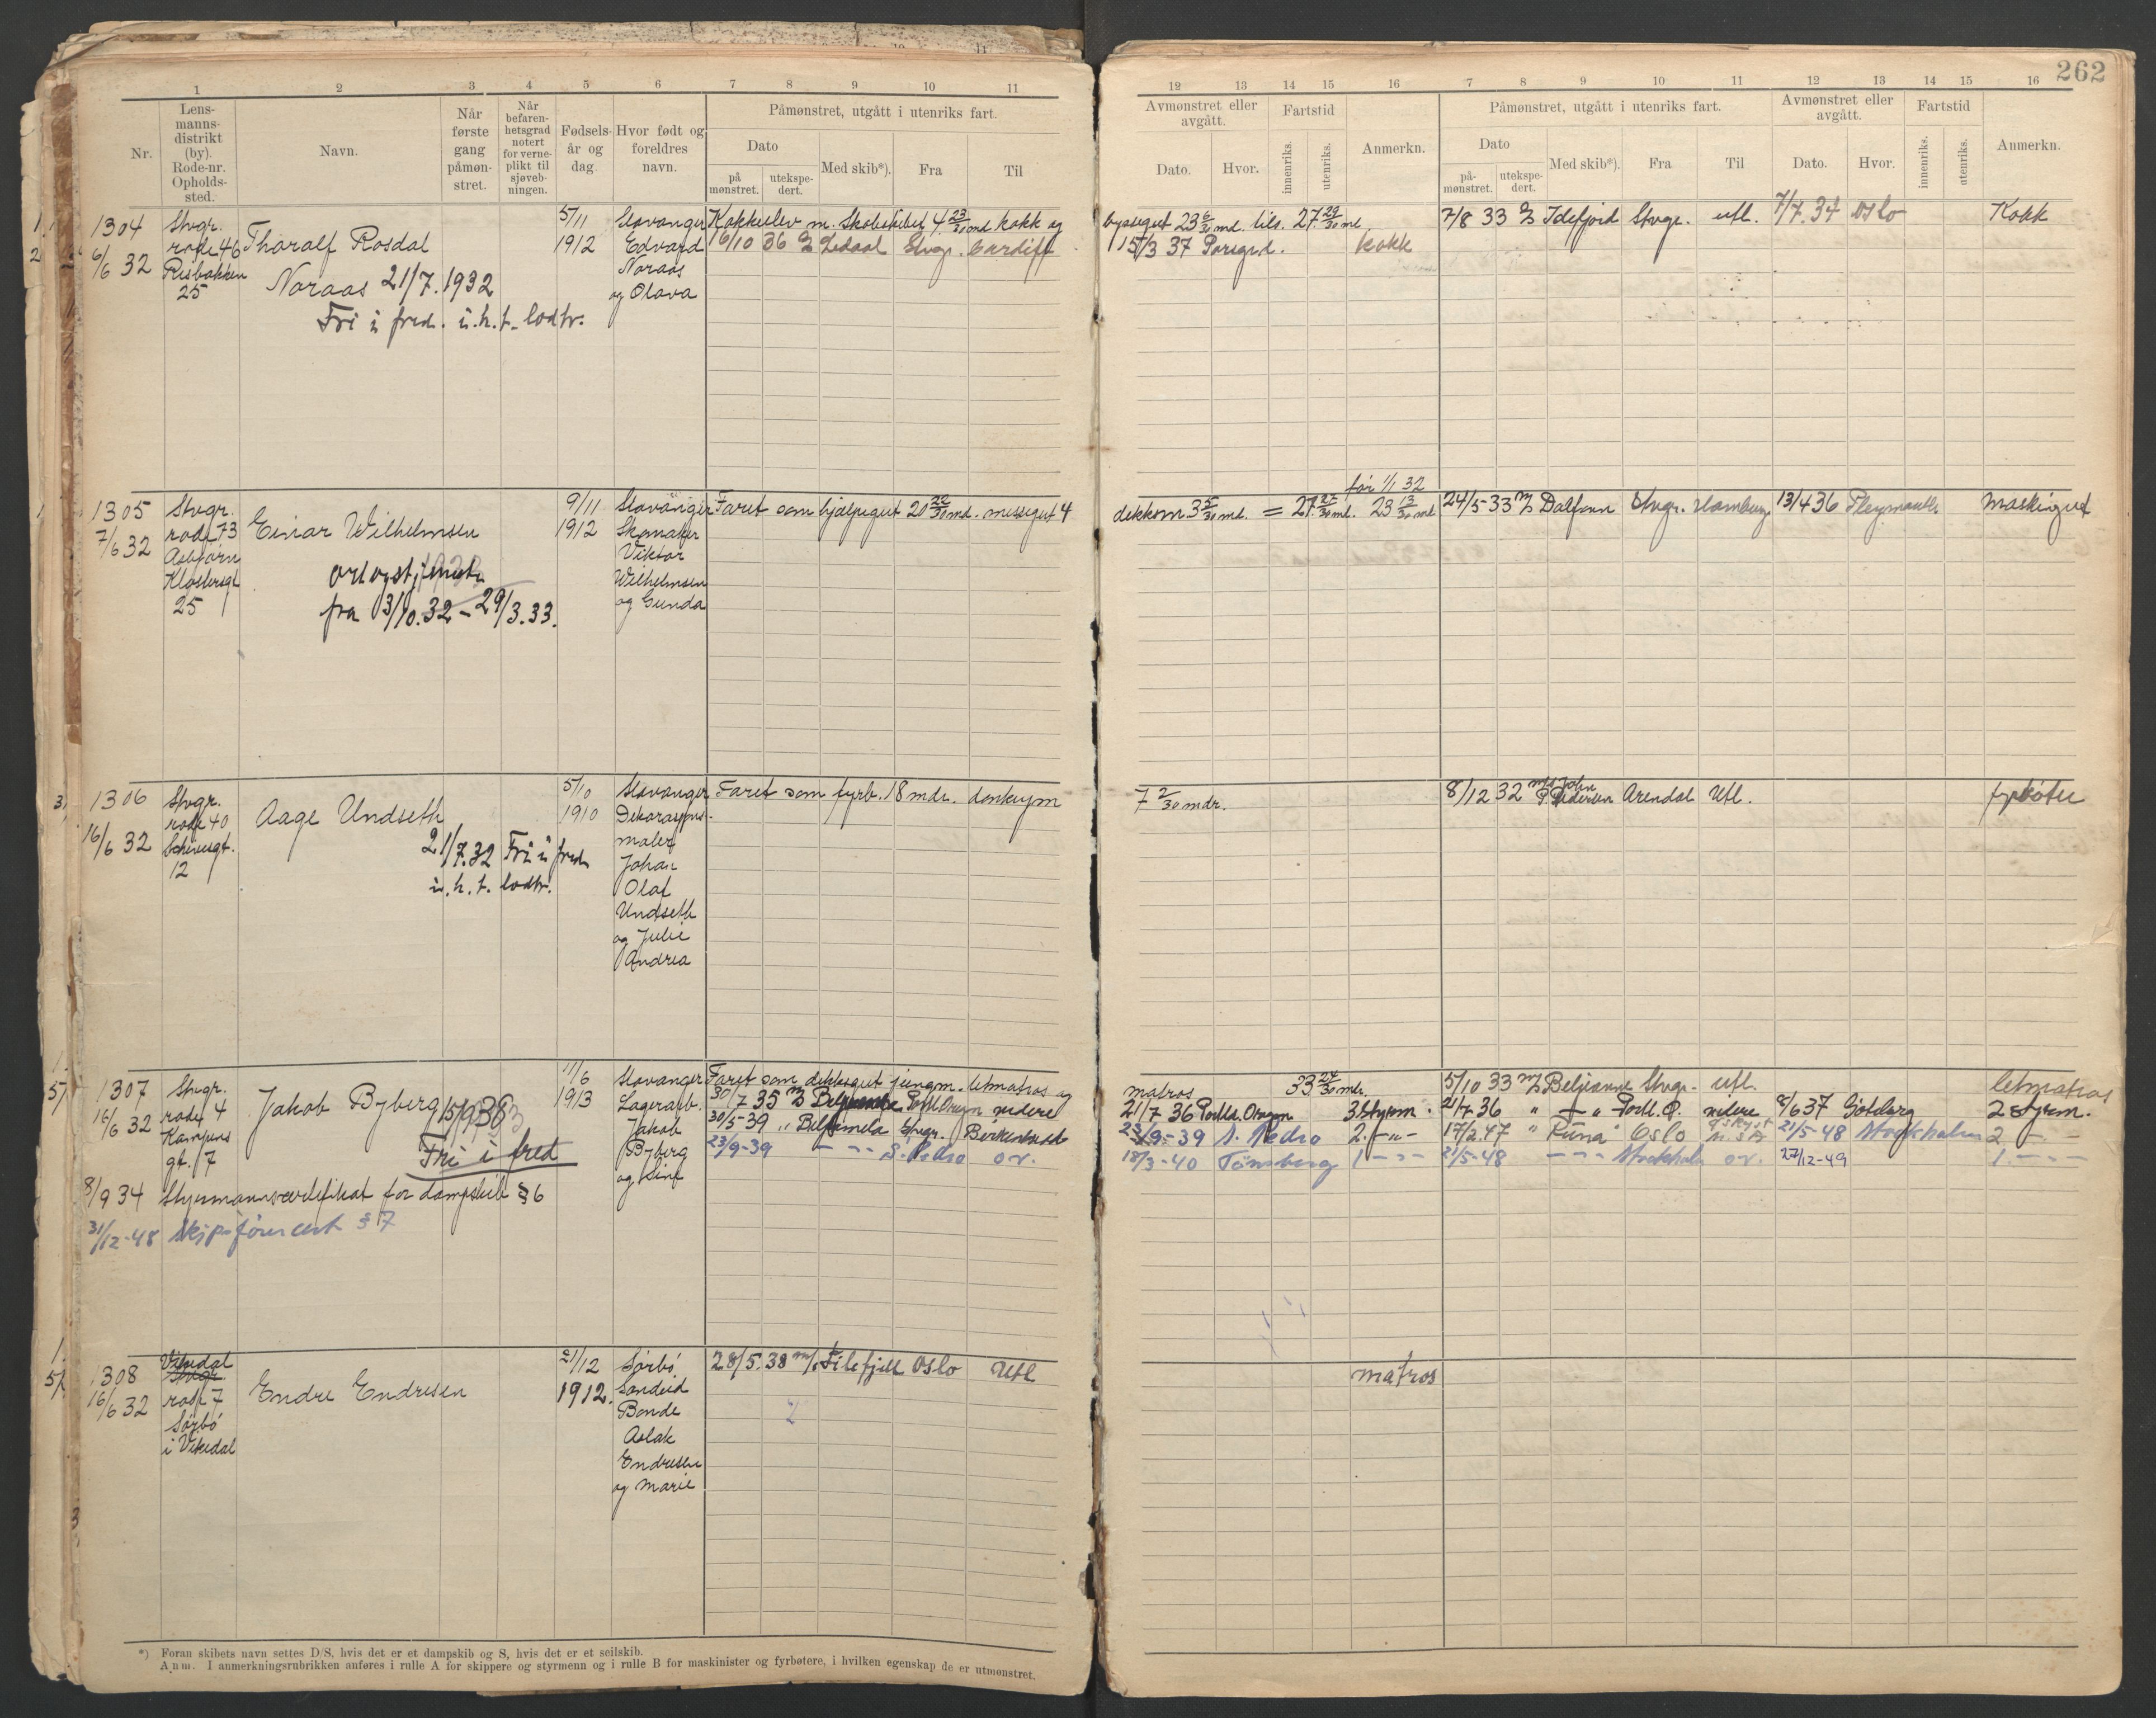 262
1 2 3 4 5 6 7 8 9 10 11
Nr.
Lens-
manns-
distrikt
(by).
Rode-nr.
Opholds-
sted.
Navn.
Når
første
gang
påmøn-
stret.
Når
befaren-
hetsgrad
notert
for verne-
plikt til
sjøveb-
ningen.
Fødsels-
år og
dag
Hvor født og
foreldres
navn.
Påmønstret, utgått i utenriks fart.
Dato
på
mønstret.
utekspe-
dert.
Med skib*).
Fra
Til
12 13 14 15 16 7 8 9 10 11 12 13 14 15 16
Avmønstret eller
avgått.
Dato.
Hvor.
Fartstid
innenriks.
utenriks.
Anmerkn.
Påmønstret, utgått i utenriks fart.
Dato
på-
mønstret.
utekspe-
dert.
Med skib*).
Fra
Til
Avmønstret eller
avgått.
Dato.
Hvor.
Fartstid
innenriks.
utenriks.
Anmerkn.
1304
6/6 32
Stvgr.
rode 46
Risbakken
25
Tharalf Rosdal
Noraas 21/7.1932
Fri i fred. i.h.t. lodtr.
5/11
1912
Stavanger
Edvard
Noraas
og Olava
Kokkelev m. Skoleskibet 4 23/30 md kokk og
16/10 36 Ledaal Stvgr. Cardiff
byssegut 23 6/30 md. tils. 27 29/30 md.
15/3 37 Porsgrd. kokk
7/8 33 Idefjord Stvgr. utl. 7/7.34 Oslo Kokk
1305
7/6 32
Stvgr.
rode 73
Asbjørn
Klostersgt
25
Einar Wilhelmsen
orlogstjeneste
fra 3/10.32 - 29/3.33.
9/11
1912
Stavanger
Skomaker
Viktor
Wilhelmsen
og Gunda
Faret som hjælpegut 20 22/30 md. messegut 4
før 1/1 32
dekksm 3 5/30 md. = 27 25/30 md. 23 13/30 md
24/5-33 Dalfonn Stvgr. Hamburg 13/4 36 maskingut
1306
16/6 32
Stvgr.
rode 40
12
Aage Undseth
21/7.32 Fri i fred
i.h.t. lodtr.
5/10
1910
Stavanger
Dekorasjons-
maler
Johan
Olaf
Undseth
og Julie
Andrea
Faret som fyrb. 18 mdr. donkeym
7 2/30 mdr.
8/12 32 John
P. Pedersen Arendal Utl. fyrbøter
1307
16/6 32
Stvgr.
rode 4
Kampens
gt. 7
Jakob Byberg 15/9 38
Fri i fred
8/9 34 Styrmannscertifikat for dampskib § 6
31/12-48 Skipsførercert § 7
11/6
1913
Stavanger
Lagerarb.
Jakob
Byberg
og
Faret som dekksgut jungm. letmatros og
30/7 35 Portl. Oregon videre
30/5-39 " Belpamela Stvgr. Birkenhead
23/9-39 - " - S. Pedro o.v.
matros 33 24/30 mdr.
21/7 36 Portld. Oregon 3 Styrm.
23/9-39 S. Pedro 2. - " -
18/3-40 Tønsberg 1 - " -
5/10 33 Beljeanne Stvgr. utl. letmatros
21/7 36 " - " Portl. O. videre 8/6 37 Göteborg 2 Styrm.
17/2.47 " Runa Oslo 21/5-48 Stockholm 2. - -
21/5-48 - " - Stockholm o.v. 27/12-49 1. - -
1308
16/6 32
Vikedal
Stvgr.
rode 7
Sørbø
i Vikedal
Endre Endresen
21/12
1912.
Sørbø
Sandeid
Bonde
Aslak
Endresen
og Marie
28/5.38 m/s Filefjell Oslo Utl
matros
*) Foran skibets navn settes D/S, hvis det er et dampskib og S, hvis det er et seilskib.
Anm. I anmerkningsrubrikken anføres i rulle A for skippere og styrmenn og i rulle B for maskinister og fyrbøtere, i hvilken egenskap de er utmønstret.